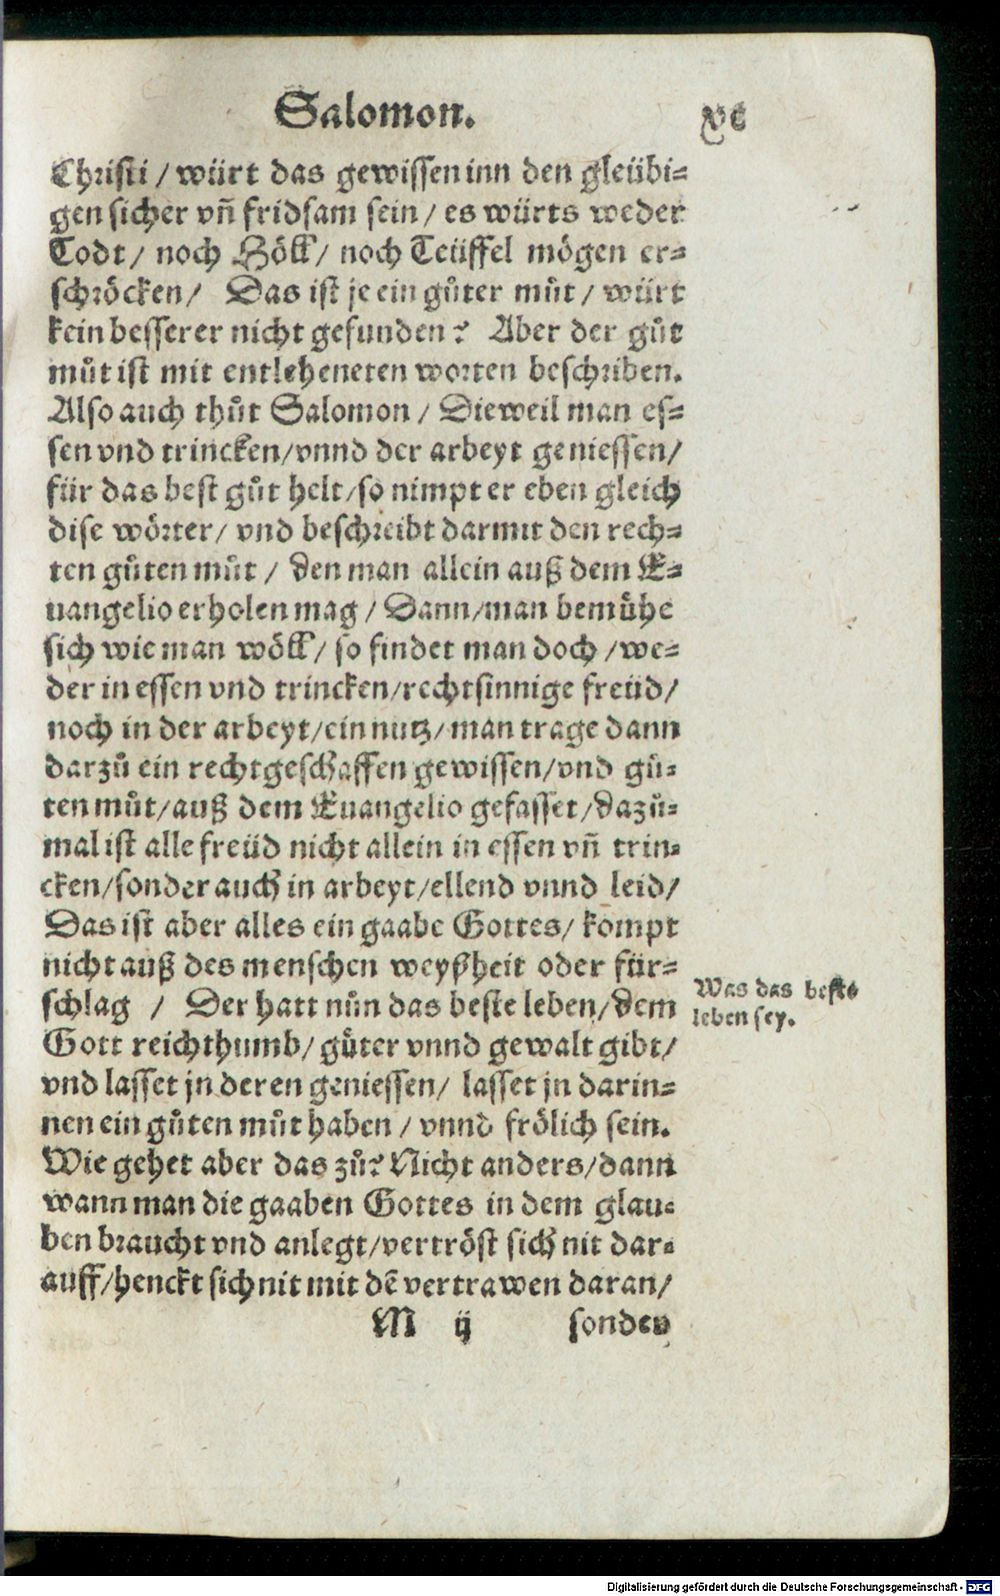 Salomon. xc
Christi / würt das gewissen inn den gleübi⸗
gen sicher vñ fridsam sein / es würts weder
Todt / noch Höll / noch Teüffel mögen er⸗
schröcken / Das ist je ein gůter můt / würt
kein besserer nicht gefunden? Aber der gůt
můt ist mit entleheneten worten beschriben.
Also auch thůt Salomon / Dieweil man es⸗
sen vnd trincken / vnnd der arbeyt geniessen /
für das best gůt helt / so nimpt er eben gleich
dise wörter / vnd beschreibt darmit den rech⸗
ten gůten můt / den man allein auß dem E⸗
uangelio erholen mag / Dann / man bemühe
sich wie man wöll / so findet man doch / we⸗
der in essen vnd trincken / rechtsinnige freüd /
noch in der arbeyt / ein nutz / man trage dann
darzů ein rechtgeschaffen gewissen / vnd gů⸗
ten můt / auß dem Euangelio gefasset / dazů⸗
mal ist alle freüd nicht allein in essen vñ trin⸗
cken / sonder auch in arbeyt / ellend vnnd leid /
Das ist aber alles ein gaabe Gottes / kompt
nicht auß des menschen weyßheit oder für⸗
schlag / Der hatt nůn das beste leben / dem
Was das beste
leben sey.
Gott reichthumb / gůter vnnd gewalt gibt /
vnd lasset jn deren geniessen / lasset jn darin⸗
nen ein gůten můt haben / vnnd frölich sein.
Wie gehet aber das zů? Nicht anders / dann
wann man die gaaben Gottes in dem glau⸗
ben braucht vnd anlegt / vertröst sich nit dar⸗
auff / henckt sich nit mit dē vertrawen daran /
M ij sonder
Digitalisierung gefördert durch die Deutsche Forschungsgemeinschaft - DFG